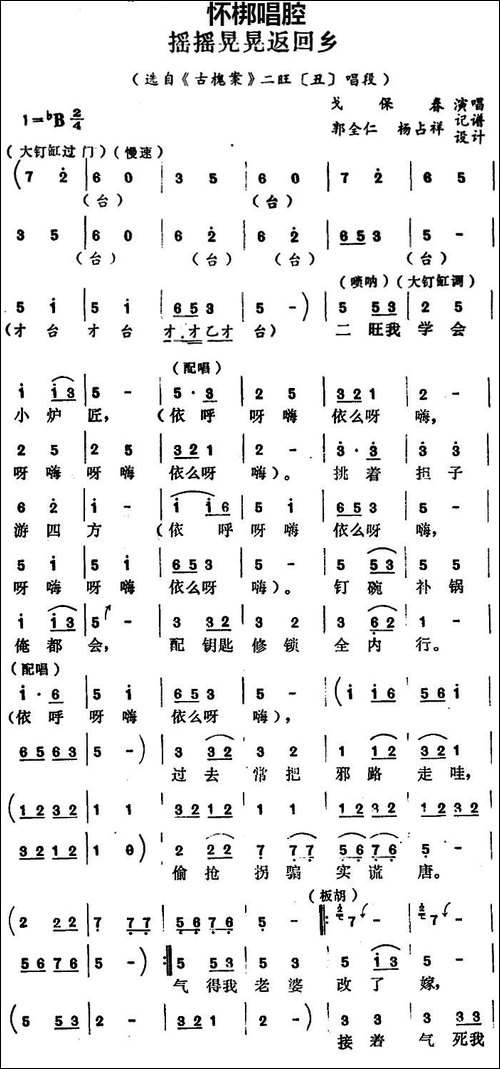 怀梆唱腔
摇摇晃晃返回乡
(选自《古槐案》二旺〔丑〕唱段)
戈保春 演唱
1=♭B 2/4 郭全仁 杨占祥 记谱设计
(大钉缸过门)(慢速)
(7 2̇ | 6 0 | 3 5 | 6 0 | 7 2̇ | 6 5 |
(台) (台)
3 5 | 6 0 | 6 2̇ | 6 2̇ | 6 5 3 | 5 - |
(台) (台) (台) (台)
(唢呐)(大钉缸调)
5 i̇ | 5 i̇ | 6 5 3 | 5 -) | 5 5 3 | 2 5 |
(才台 才台 才.才乙才 台) 二旺我学会
i̇ i̇ 3 | 5 - | 5· 3 | 2 5 | 3 2 1 | 2 - |
(配唱)
小炉匠, (依呼呀嗨 依么呀 嗨,
2 5 | 2 5 | 3 2 1 | 2 - | 3̇· 3̇ | 3̇ 3̇ |
呀嗨呀嗨 依么呀 嗨)。 挑着担子
6 2̇ | i̇ - | i̇ i̇ 6 | 5 i̇ | 6 5 3 | 5 - |
游四方 (依呼呀嗨 依么呀 嗨,
5 i̇ | 5 i̇ | 6 5 3 | 5 - | 5 5 3 | 5 5 |
呀嗨呀嗨 依么呀 嗨)。 钉碗补锅
i̇ i̇ 3 | 5 - | 3 3 2 | 3 2 | 3 6 2 | 1 - |
俺都会, 配钥匙修锁 全内行。
(配唱)
i̇· 6 | 5 i̇ | 6 5 3 | 5 - | (i̇ i̇ 6 | 5 6 i̇ |
(依呼呀嗨 依么呀 嗨),
6 5 6 3 | 5 -) | 3 3 2 | 3 2 | 1 1 2 | 3 2 1 2 |
过去常把 邪路走哇,
(1 2 3 2 | 1 1 | 3 2 1 2 | 1 1 | 1 2 3 2 | 1 2 1 2 |
3 2 1 2 | 1 0) | 2 2 2 | 7 7 7 | 5 6 7 6 | 5 - |
偷抢拐骗 实谎唐。
(板胡)
(2 2 2 | 7 7 7 | 5 6 7 6 | 5 - |: 7 - | 7 - |
5 6 7 6 | 5 -) :| 5 5 3 | 5 3 | 5 i̇ 3 | 5 - |
气得我老婆 改了嫁,
(5 5 3 | 2 - | 3 2 1 | 2 -) | 3 3 | 3 5 3 |
接着气死我